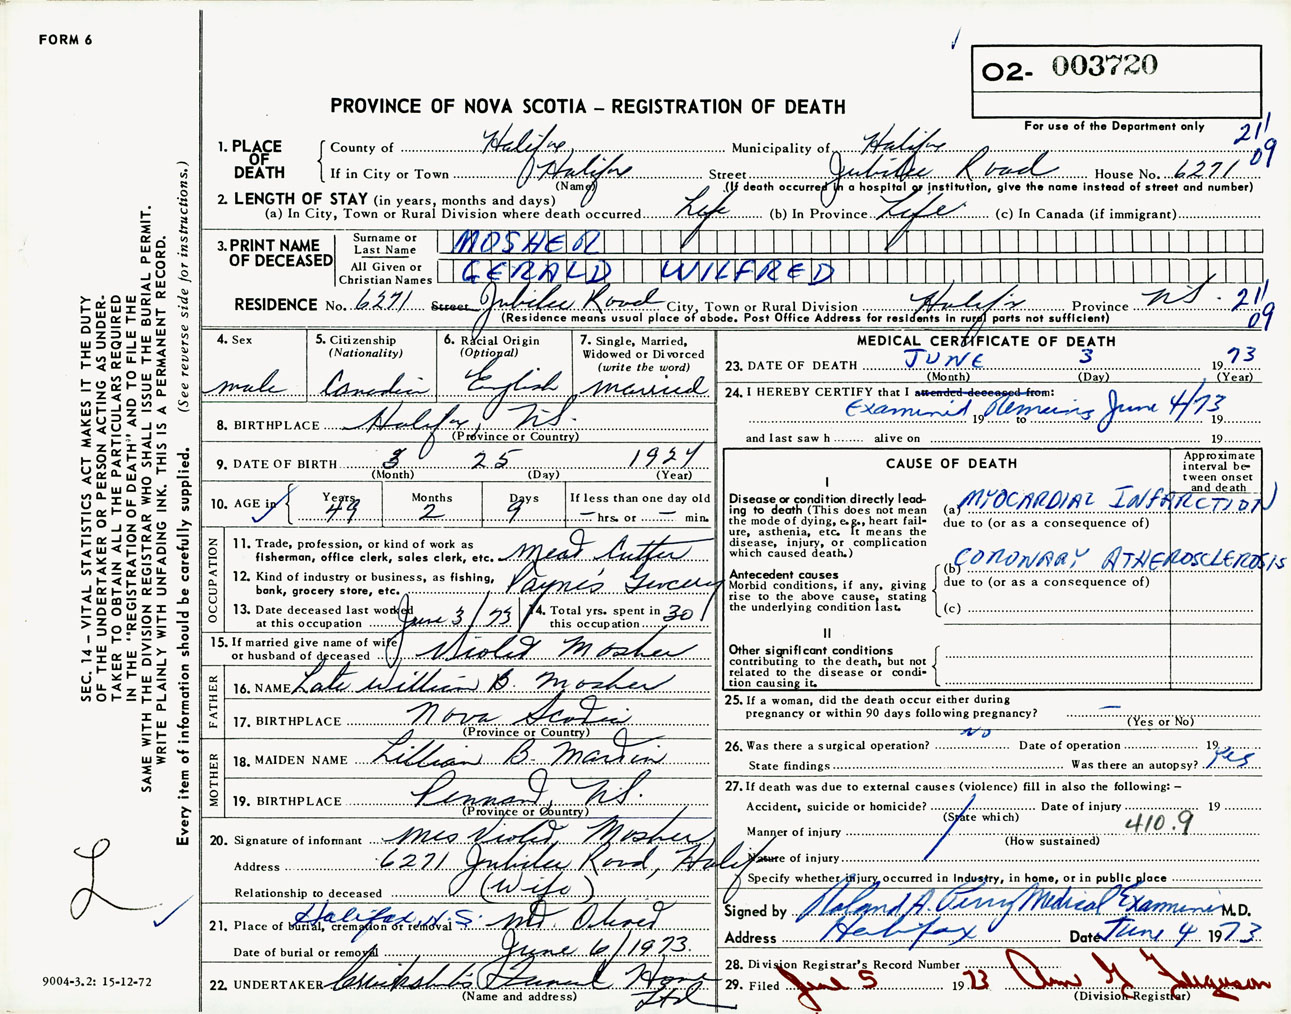 FORM 6
O2- 003720
PROVINCE OF NOVA SCOTIA – REGISTRATION OF DEATH
For use of the Department only
211
09
1. PLACE OF DEATH
County of Halifax Municipality of Halifax
If in City or Town Halifax Street Jubilee Road House No. 6271
(Name) (If death occurred in a hospital or institution, give the name instead of street and number)
2. LENGTH OF STAY (in years, months and days)
(a) In City, Town or Rural Division where death occurred Life (b) In Province Life (c) In Canada (if immigrant)
3. PRINT NAME OF DECEASED
Surname or Last Name MOSHER
All Given or Christian Names GERALD WILFRED
RESIDENCE No. 6271 Street Jubilee Road City, Town or Rural Division Halifax Province N.S. 211
(Residence means usual place of abode. Post Office Address for residents in rural parts not sufficient) 09
4. Sex
male
5. Citizenship
(Nationality)
Canadian
6. Racial Origin
(Optional)
English
7. Single, Married,
Widowed or Divorced
(write the word)
married
8. BIRTHPLACE Halifax, N.S.
(Province or Country)
9. DATE OF BIRTH 3 25 1924
(Month) (Day) (Year)
10. AGE in Years Months Days If less than one day old
49 2 9 – hrs. or – min.
OCCUPATION
11. Trade, profession, or kind of work as
fisherman, office clerk, sales clerk, etc. Meat Cutter
12. Kind of industry or business, as fishing,
bank, grocery store, etc. Payne's Grocery
13. Date deceased last worked
at this occupation June 3/73
14. Total yrs. spent in
this occupation 30
15. If married give name of wife
or husband of deceased Violet Mosher
FATHER
16. NAME Late William B. Mosher
17. BIRTHPLACE Nova Scotia
(Province or Country)
MOTHER
18. MAIDEN NAME Lillian B. Martin
19. BIRTHPLACE Pennant, N.S.
(Province or Country)
20. Signature of informant Mrs Violet Mosher
Address 6271 Jubilee Road, Halifax
Relationship to deceased (Wife)
21. Place of burial, cremation or removal Halifax N.S. Mt. Olivet
Date of burial or removal June 6/1973
22. UNDERTAKER Cruikshanks Funeral Home
(Name and address) Ltd
MEDICAL CERTIFICATE OF DEATH
23. DATE OF DEATH JUNE 3 1973
(Month) (Day) (Year)
24. I HEREBY CERTIFY that I attended deceased from:
Examined Remains June 4/73
19 to 19
and last saw h alive on 19
CAUSE OF DEATH
Approximate interval between onset and death
I
Disease or condition directly leading to death (This does not mean the mode of dying, e.g., heart failure, asthenia, etc. It means the disease, injury, or complication which caused death.)
(a) MYOCARDIAL INFARCTION
due to (or as a consequence of)
Antecedent causes
Morbid conditions, if any, giving rise to the above cause, stating the underlying condition last.
(b) CORONARY ATHEROSCLEROSIS
due to (or as a consequence of)
(c)
II
Other significant conditions
contributing to the death, but not related to the disease or condition causing it.
25. If a woman, did the death occur either during
pregnancy or within 90 days following pregnancy? –
(Yes or No)
26. Was there a surgical operation? No Date of operation 19
State findings Was there an autopsy? Yes
27. If death was due to external causes (violence) fill in also the following: –
Accident, suicide or homicide? Date of injury 19
(State which)
Manner of injury 410.9
(How sustained)
Nature of injury
Specify whether injury occurred in Industry, in home, or in public place
Signed by Roland A. Perry Medical Examiner M.D.
Address Halifax Date June 4 1973
28. Division Registrar's Record Number
29. Filed June 5 1973 Ann G Ferguson
(Division Registrar)
SEC. 14 – VITAL STATISTICS ACT MAKES IT THE DUTY
OF THE UNDERTAKER OR PERSON ACTING AS UNDER-
TAKER TO OBTAIN ALL THE PARTICULARS REQUIRED
IN THE "REGISTRATION OF DEATH" AND TO FILE THE
SAME WITH THE DIVISION REGISTRAR WHO SHALL ISSUE THE BURIAL PERMIT.
WRITE PLAINLY WITH UNFADING INK. THIS IS A PERMANENT RECORD.
Every item of information should be carefully supplied. (See reverse side for instructions.)
L
9004-3.2: 15-12-72